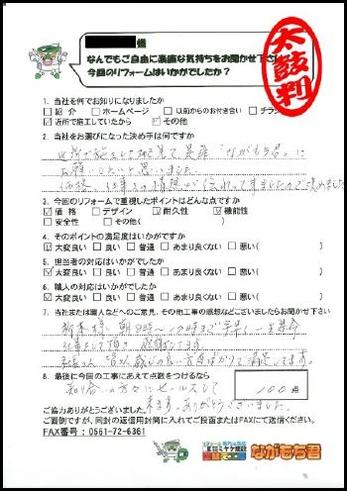 様
なんでもご自由に素直な気持ちをお聞かせ下さい
今回のリフォームはいかがでしたか?
太鼓判
1. 当社を何でお知りになりましたか
□紹 介 □ホームページ □以前からのお付き合い □チラシ
☑近所で施工していたから ☑その他
2. 当社をお選びになった決め手は何ですか
近所で施工した
見て是非 "ながもち君"に
お願いしたいと思いました
価格、仕事
ので決めました
3. 今回のリフォームで重視したポイントはどんな点ですか
☑価 格 □デザイン ☑耐久性 ☑機能性
□安全性 □その他( )
4. そのポイントの満足度はいかがですか
☑大変良い □良い □普通 □あまり良くない □悪い( )
5. 担当者の対応はいかがでしたか
☑大変良い □良い □普通 □あまり良くない □悪い( )
6. 職人の対応はいかがでしたか
☑大変良い □良い □普通 □あまり良くない □悪い( )
7. 当社または職人などへのご意見、その他工事の感想などございましたらお聞かせ下さい
様、朝8時〜
仕事をして頂き 感謝してます
満足してます。
8. 最後に今回の工事にあえて点数をつけるなら
100点
知り合いの方々にセールスして
きます。ありがとうございました。
ご協力ありがとうございました。
ご面倒ですが、同封の返信用封筒に入れてご投函またはFAXにて送信ください。
FAX番号 : 0561-72-6361
ながもち君